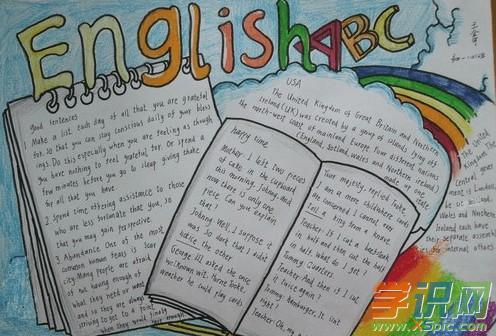 English ABC
Good sentences
1 Make a list each day of all that you are grateful
for, so that you can stay conscious daily of your bless
ings. Do this especially when you are feeling as though
you have nothing to feel grateful for. Or spend a
few minutes before you go to sleep giving thanks
for all that you have
2 Spend time offering assistance to those
who are less fortunate that you, so
that you may gain perspective.
3 Abundance. One of the most
common human fears is scar
city Many people are afraid
of not having enough of
what they need or want
and so they are always
striving to get to a point
when they would finally enough
happy time
Mother: I left two pieces
of cake in the cupboard
this morning, Johnny. And
now there is only one
piece. Can you explain
that?
Johnny: Well, I suppose it
was so dark that I didn't
notice the other
George III asked the once
whether he could play cards
Your majesty, replied
I am a more
are concerned I cannot even
tell a king from a knave.
Teacher: If I cut a beefsteak
in half and then cut the half
in half, what do I get?
Tommy: Quarters.
Teacher: And then if I cut
it twice again?
Tommy: hamburger.
right?
Teacher: Oh, my
USA
The United Kingdom of Great Britain and Northern
Ireland (UK) was created by a group of islands lying off
the north-west coast of mainland Europe. Four different nations
(England, Scotland, Wales and Northern Ireland)
make up one
state
the United
Kingdom
The
Central
govern
ment is
London
Wales and
Northern
Ireland each have
their separate
internal affairs
学识网
X5pic.com